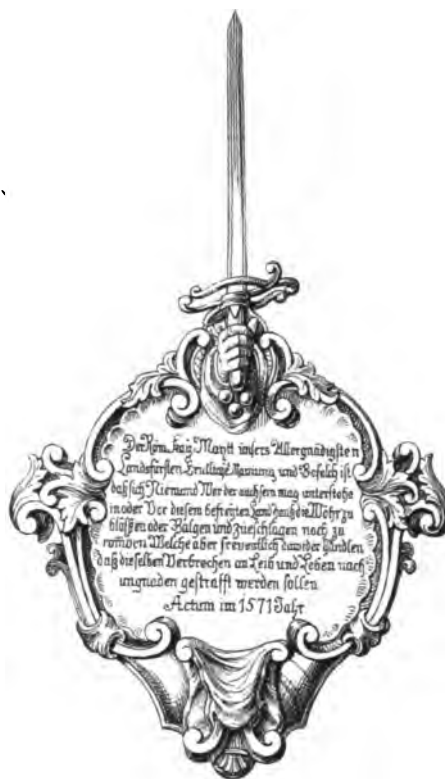 Der Röm. Kay. Maytt unsers Allergnädigsten
Landsfürsten Ernstliche Mainung und Befelch ist
daß sich Niemand Wer der auch sein mag unterstehe
in oder Vor diesem befreiten Landhauß die Wöhr zu
blössen oder Balgen und zueschlagen noch zu
romorn Welche aber freventlich dawider handlen
daß dieselben Verbrechen an Leib und Leben nach
ungnaden gestrafft werden sollen
Actum im 1571 Jahr